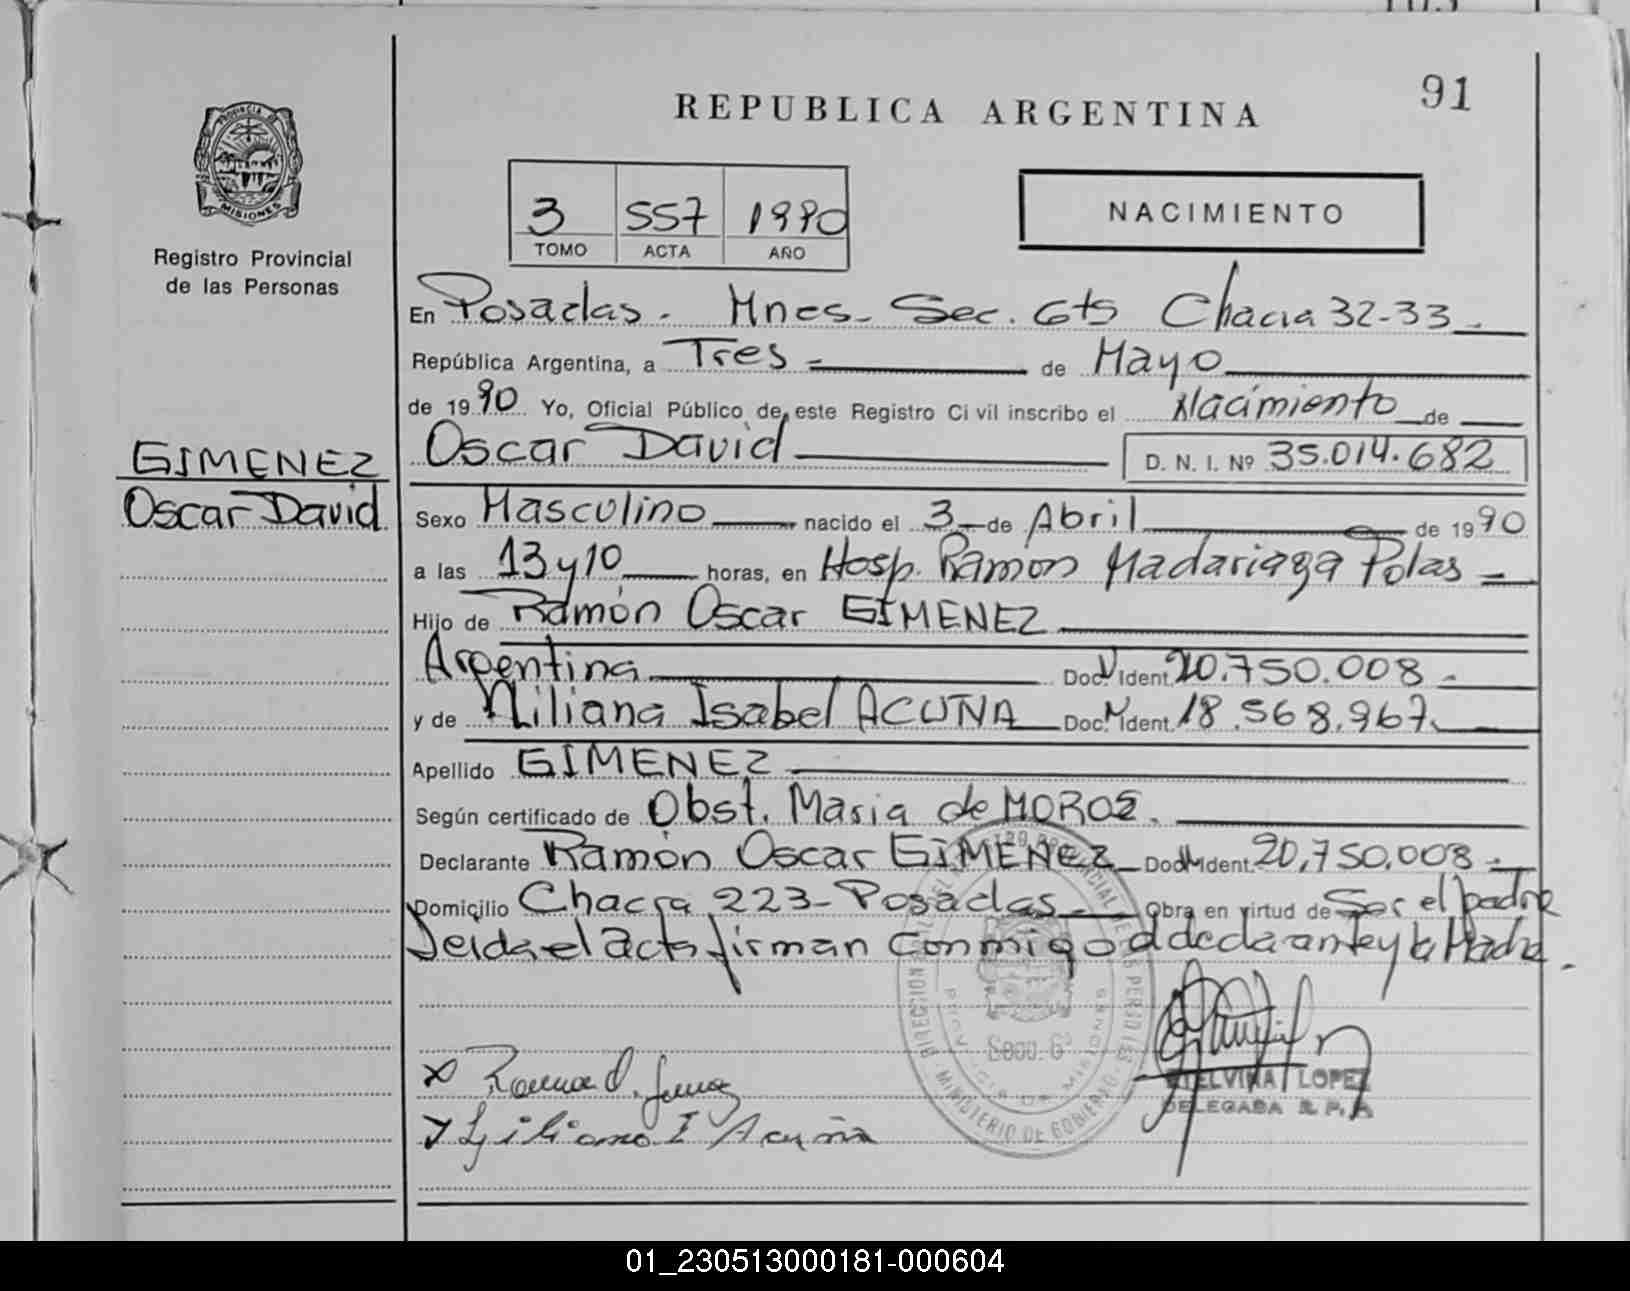 91
REPUBLICA ARGENTINA
PROVINCIA DE
MISIONES
Registro Provincial
de las Personas
3 557 1990
TOMO ACTA AÑO
NACIMIENTO
En Posadas. Mnes. Sec. 6ta Chacra 32-33
República Argentina, a Tres de Mayo
de 1990 Yo, Oficial Público de este Registro Civil inscribo el Nacimiento de
Oscar David D. N. I. Nº 35.014.682
GIMENEZ
Oscar David
Sexo Masculino nacido el 3 de Abril de 1990
a las 13 y 10 horas, en Hosp. Ramón Madariaga
Hijo de Ramón Oscar GIMENEZ
Argentina Doc. Ident. 20.750.008
y de Liliana Isabel ACUÑA Doc. Ident. 18.568.967
Apellido GIMENEZ
Según certificado de Obst. Maria de MOROZ.
Declarante Ramón Oscar GIMENEZ Doc. Ident. 20.750.008
Domicilio Chacra 223- Posadas Obra en virtud de Ser el padre
Leida el acta firman conmigo el declarante y la Madre.
DIRECCION DEL REGISTRO PROVINCIAL DE LAS PERSONAS
PROVINCIA DE MISIONES
Secc. 6ª
MINISTERIO DE GOBIERNO
ETELVINA LOPEZ
DELEGADA R.P.P.
Liliana I Acuña
01_230513000181-000604